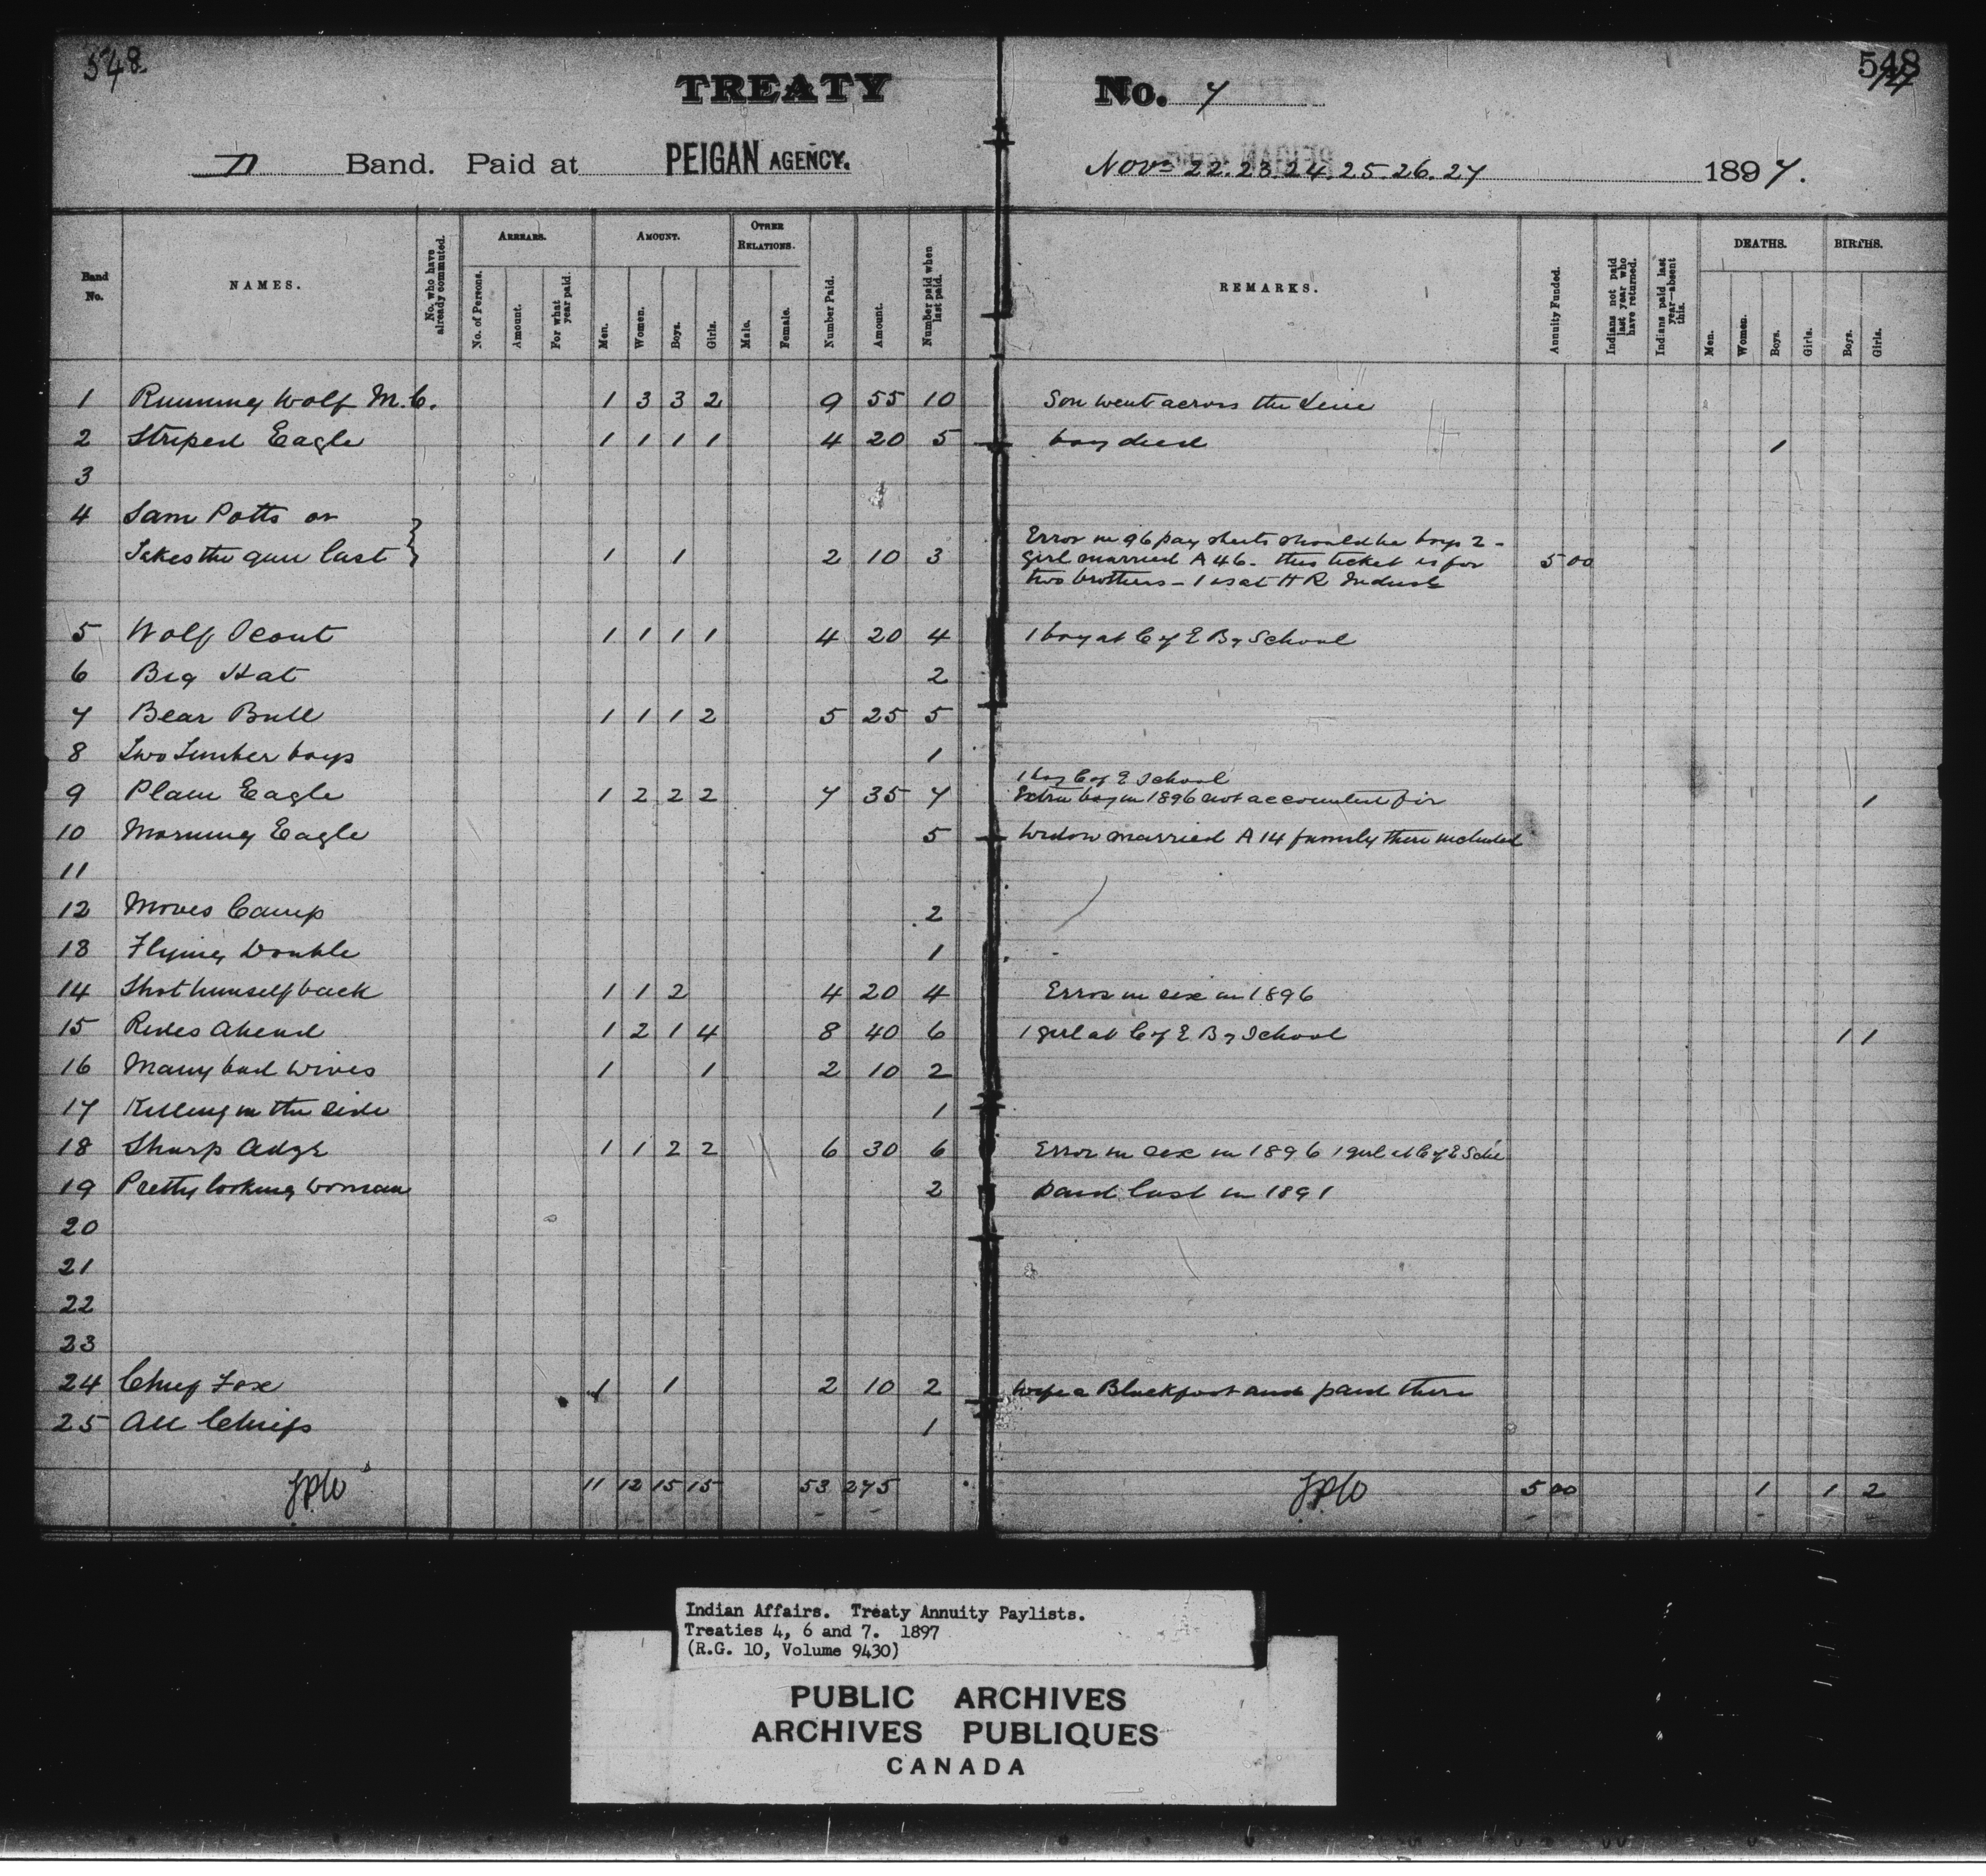 548.
548
TREATY No. 7
D Band. Paid at PEIGAN AGENCY. Nov 22.23.24.25.26.27 1897.
Band No.
NAMES.
No. who have already commuted.
ARREARS.
No. of Persons.
Amount.
For what year paid.
AMOUNT.
Men.
Women.
Boys.
Girls.
OTHER RELATIONS.
Male.
Female.
Number Paid.
Amount.
Number paid when last paid.
REMARKS.
Annuity Funded.
Indians not paid last year who have returned.
Indians paid last year—absent this.
DEATHS.
Men.
Women.
Boys.
Girls.
BIRTHS.
Boys.
Girls.
1 Running Wolf M.C. 1 3 3 2 9 55 10 Son went across the Line
2 Striped Eagle 1 1 1 1 4 20 5 boy died 1
3
4 Sam Potts or
Takes the gun last 1 1 2 10 3 Error in 96 pay sheets should be boys 2 -
girl married A 46 - this ticket is for 5 00
two brothers - 1 is at H R Indust
5 Wolf Scout 1 1 1 1 4 20 4 1 boy at C of E Bg School
6 Big Hat 2
7 Bear Bull 1 1 1 2 5 25 5
8 Two Timber boys 1
1 boy C of E School
9 Plain Eagle 1 2 2 2 7 35 7 Extra boy in 1896 not accounted for 1
10 Morning Eagle 5 Widow married A 14 family there included
11
12 Moves Camp 2
13 Flying Double 1
14 Shot himself back 1 1 2 4 20 4 Error in sex in 1896
15 Rides Ahead 1 2 1 4 8 40 6 1 girl at C of E Bg School 1 1
16 Many bad Wives 1 1 2 10 2
17 Killing in the side 1
18 Sharp Adge 1 1 2 2 6 30 6 Error in sex in 1896 1 girl at C of E Sch
19 Pretty looking Woman 2 paid last in 1891
20
21
22
23
24 Chief Fox 1 1 2 10 2 Wife a Blackfoot and paid there
25 All Chiefs 1
11 12 15 15 53 275 5 00 1 1 2
Indian Affairs. Treaty Annuity Paylists.
Treaties 4, 6 and 7. 1897
(R.G. 10, Volume 9430)
PUBLIC ARCHIVES
ARCHIVES PUBLIQUES
CANADA